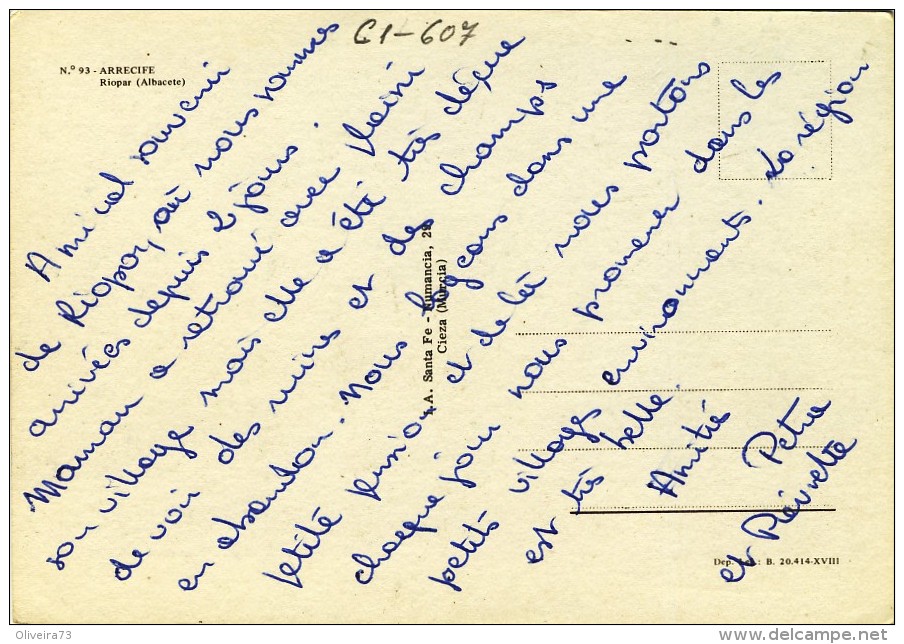 C1-607
N.º 93 - ARRECIFE
Riopar (Albacete)
Amical souvenir
de Riopar, où nous sommes
arrivés depuis 2 jours.
Maman a retrouvé avec plaisir
son village mais elle a été très déçue
de voir des ruines et des champs
en abandon. Nous logeons dans une
petite pension et de là nous partons
chaque jour nous promener dans les
petits villages environnants. La région
est très belle.
Amitié
Petra
et Pierrette
I.A. Santa Fe - Numancia, 29
Cieza (Murcia)
Dep. Leg.: B. 20.414-XVIII
Oliveira73
delcampe.net